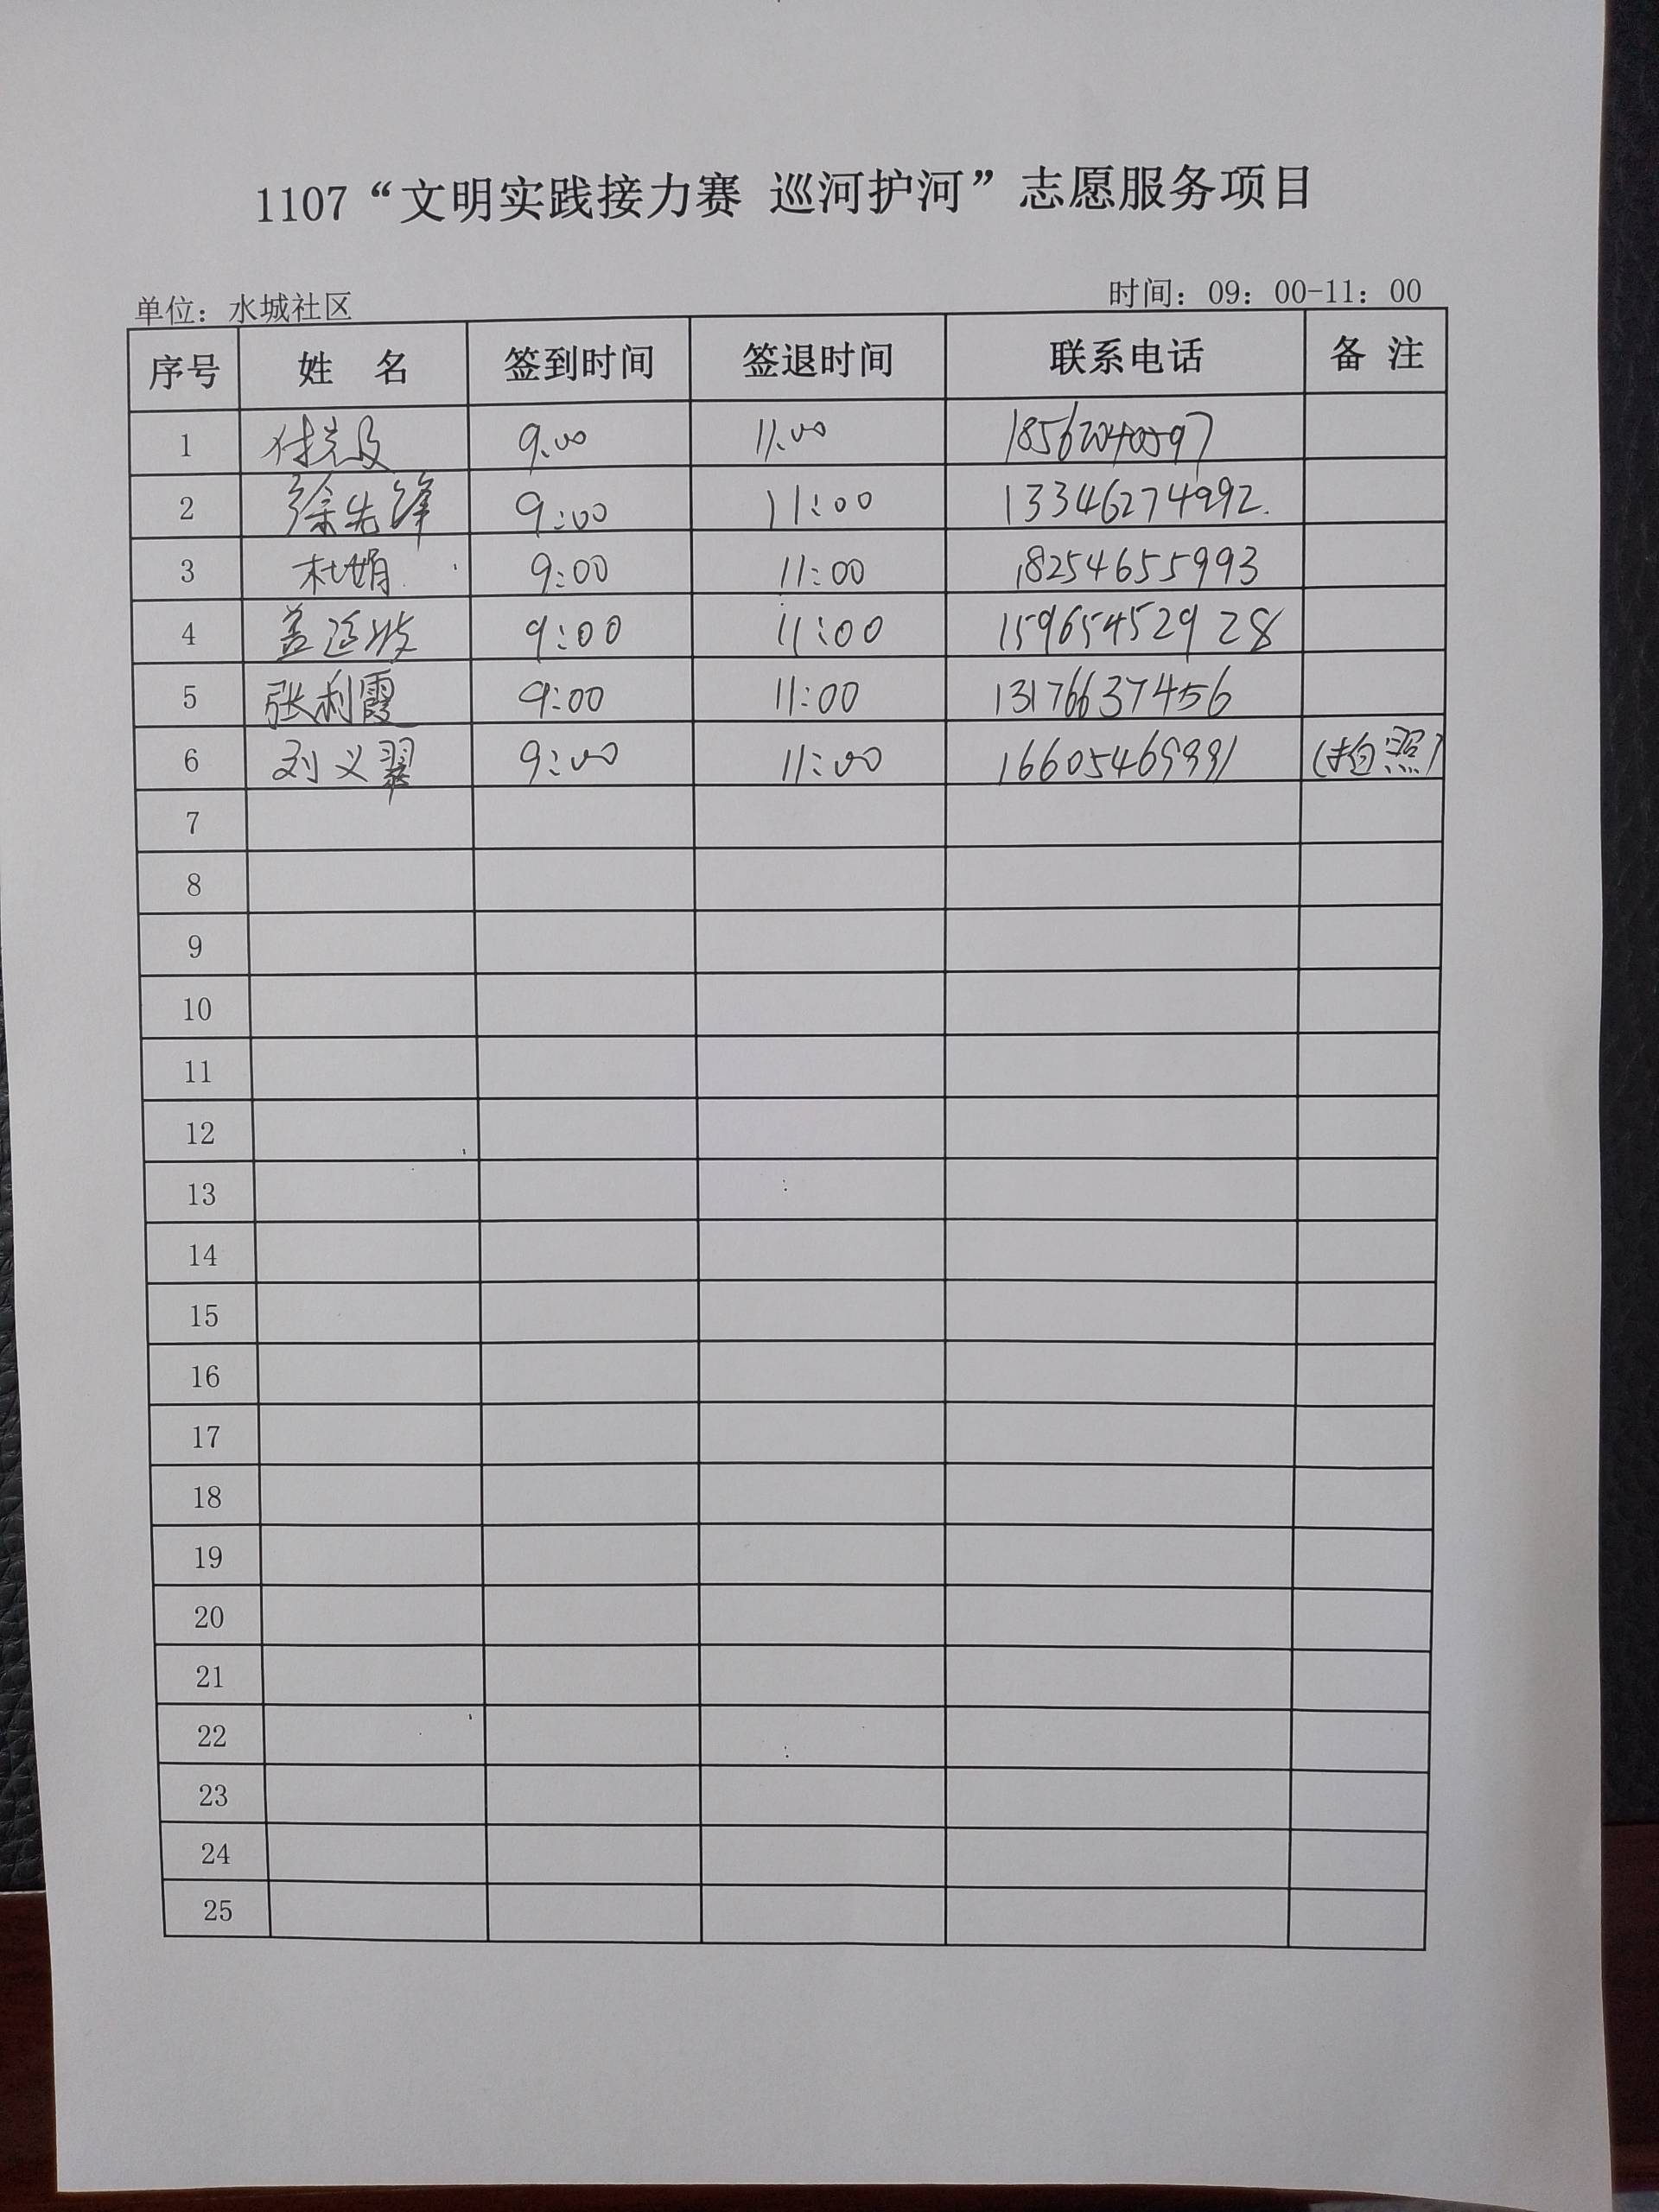 1107“文明实践接力赛 巡河护河”志愿服务项目
单位：水城社区 时间：09：00-11：00
序号 姓 名 签到时间 签退时间 联系电话 备 注
1 9:00 11:00
2 徐先锋 9:00 11:00 13346274992
3 杜娟 9:00 11:00 18254655993
4 盖延波 9:00 11:00 15965452928
5 张利霞 9:00 11:00 13176637456
6 刘义翠 9:00 11:00 (拍照)
7
8
9
10
11
12
13
14
15
16
17
18
19
20
21
22
23
24
25